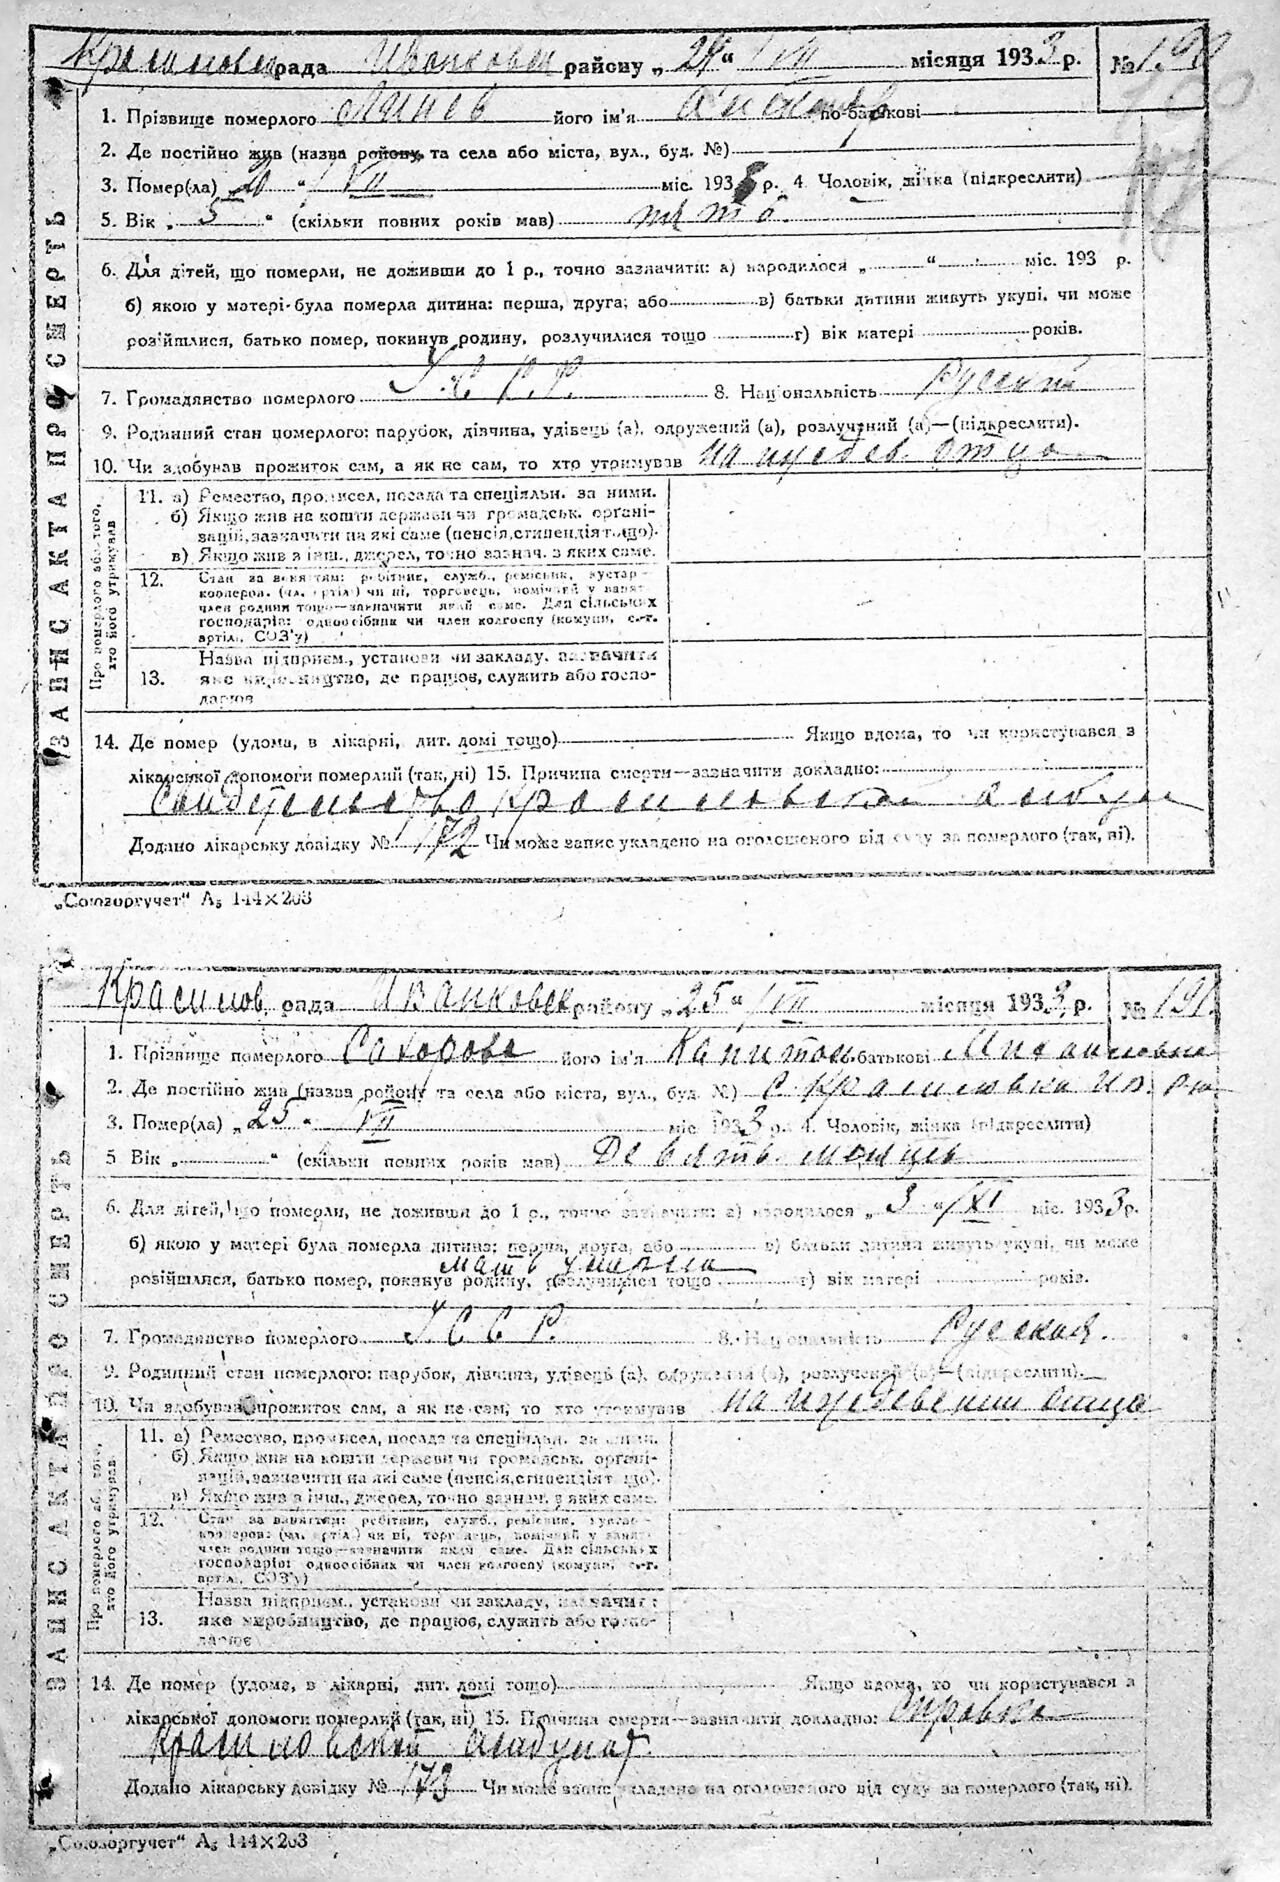 рада Иванковск району „24“ VII місяця 1933 р. № 190
1. Прізвище померлого його ім'я по-батькові
2. Де постійно жив (назва району, та села або міста, вул., буд. №)
3. Помер(ла) 20 “ VII міс. 1933 р. 4. Чоловік, жінка (підкреслити)
5. Вік „ 5 “ (скільки повних років мав)
6. Для дітей, що померли, не доживши до 1 р., точно зазначити: а) народилося „ “ міс. 193 р.
б) якою у матері була померла дитина: перша, друга, або в) батьки дитини живуть укупі, чи може
розійшлися, батько помер, покинув родину, розлучилися тощо г) вік матері років.
7. Громадянство померлого У.С.С.Р. 8. Національність Русский
9. Родинний стан померлого: парубок, дівчина, удівець (а), одружений (а), розлучений (а)—(підкреслити).
10. Чи здобував прожиток сам, а як не сам, то хто утримував на иждев. отца
ЗАПИС АКТА ПРО СМЕРТЬ
Про померлого або того,
хто його утримував
11. а) Ремество, промисел, посада та спеціяльн. за ними.
б) Якщо жив на кошти держави чи громадськ. органі-
зацій, зазначити на які саме (пенсія, стипендія тощо).
в) Якщо жив з інш. джерел, точно зазнач. з яких саме.
12. Стан за заняттям: робітник, служб., ремісник, кустар-
кооперов. (чл. артіл.) чи ні, торговець, помічний у занят.
член родини тощо—зазначити який саме. Для сільських
господарів: одноосібник чи член колгоспу (комуни, с.-г.
артіл., СОЗ'у)
13. Назва підприєм., установи чи закладу, зазначити
яке виробництво, де працює, служить або госпо-
дарює
14. Де помер (удома, в лікарні, дит. домі тощо) Якщо вдома, то чи користувався з
лікарської допомоги померлий (так, ні) 15. Причина смерти—зазначити докладно:
Свидетельство Красиловской амбул
Додано лікарську довідку № 172 Чи може запис укладено на оголошеного від суду за померлого (так, ні).
„Союзоргучет“ А₅ 144×203
Красилов рада Иванковск району „25“ VII місяця 1933 р. № 191.
1. Прізвище померлого його ім'я Капитол по-батькові
2. Де постійно жив (назва району та села або міста, вул., буд. №) с. Красиловка Ив. р-н
3. Помер(ла) „25“ VII міс. 1933 р. 4. Чоловік, жінка (підкреслити)
5 Вік „ “ (скільки повних років мав) Девять месяцев
6. Для дітей, що померли, не доживши до 1 р., точно зазначити: а) народилося „3“ XI міс. 1933 р.
б) якою у матері була померла дитина: перша, друга, або в) батьки дитини живуть укупі, чи може
мать умерла
розійшлися, батько помер, покинув родину, розлучилися тощо г) вік матері років.
7. Громадянство померлого У С С Р. 8. Національність Русская.
9. Родинний стан померлого: парубок, дівчина, удівець (а), одружений (а), розлучений (а)—(підкреслити).
10. Чи здобував прожиток сам, а як не сам, то хто утримував на иждевении отца
ЗАПИС АКТА ПРО СМЕРТЬ
Про померлого або того,
хто його утримував
11. а) Ремество, промисел, посада та спеціяльн. за ними.
б) Якщо жив на кошти держави чи громадськ. органі-
зацій, зазначити на які саме (пенсія, стипендія тощо).
в) Якщо жив з інш. джерел, точно зазнач. з яких саме.
12. Стан за заняттям: робітник, служб., ремісник, кустар-
кооперов. (чл. артіл.) чи ні, торговець, помічний у занят.
член родини тощо—зазначити який саме. Для сільських
господарів: одноосібник чи член колгоспу (комуни, с.-г.
артіл., СОЗ'у)
13. Назва підприєм., установи чи закладу, зазначити
яке виробництво, де працює, служить або госпо-
дарює
14. Де помер (удома, в лікарні, дит. домі тощо) Якщо вдома, то чи користувався з
лікарської допомоги померлий (так, ні) 15. Причина смерти—зазначити докладно: справка
Красиловской амбулат.
Додано лікарську довідку № 173 Чи може запис укладено на оголошеного від суду за померлого (так, ні).
„Союзоргучет“ А₅ 144×203